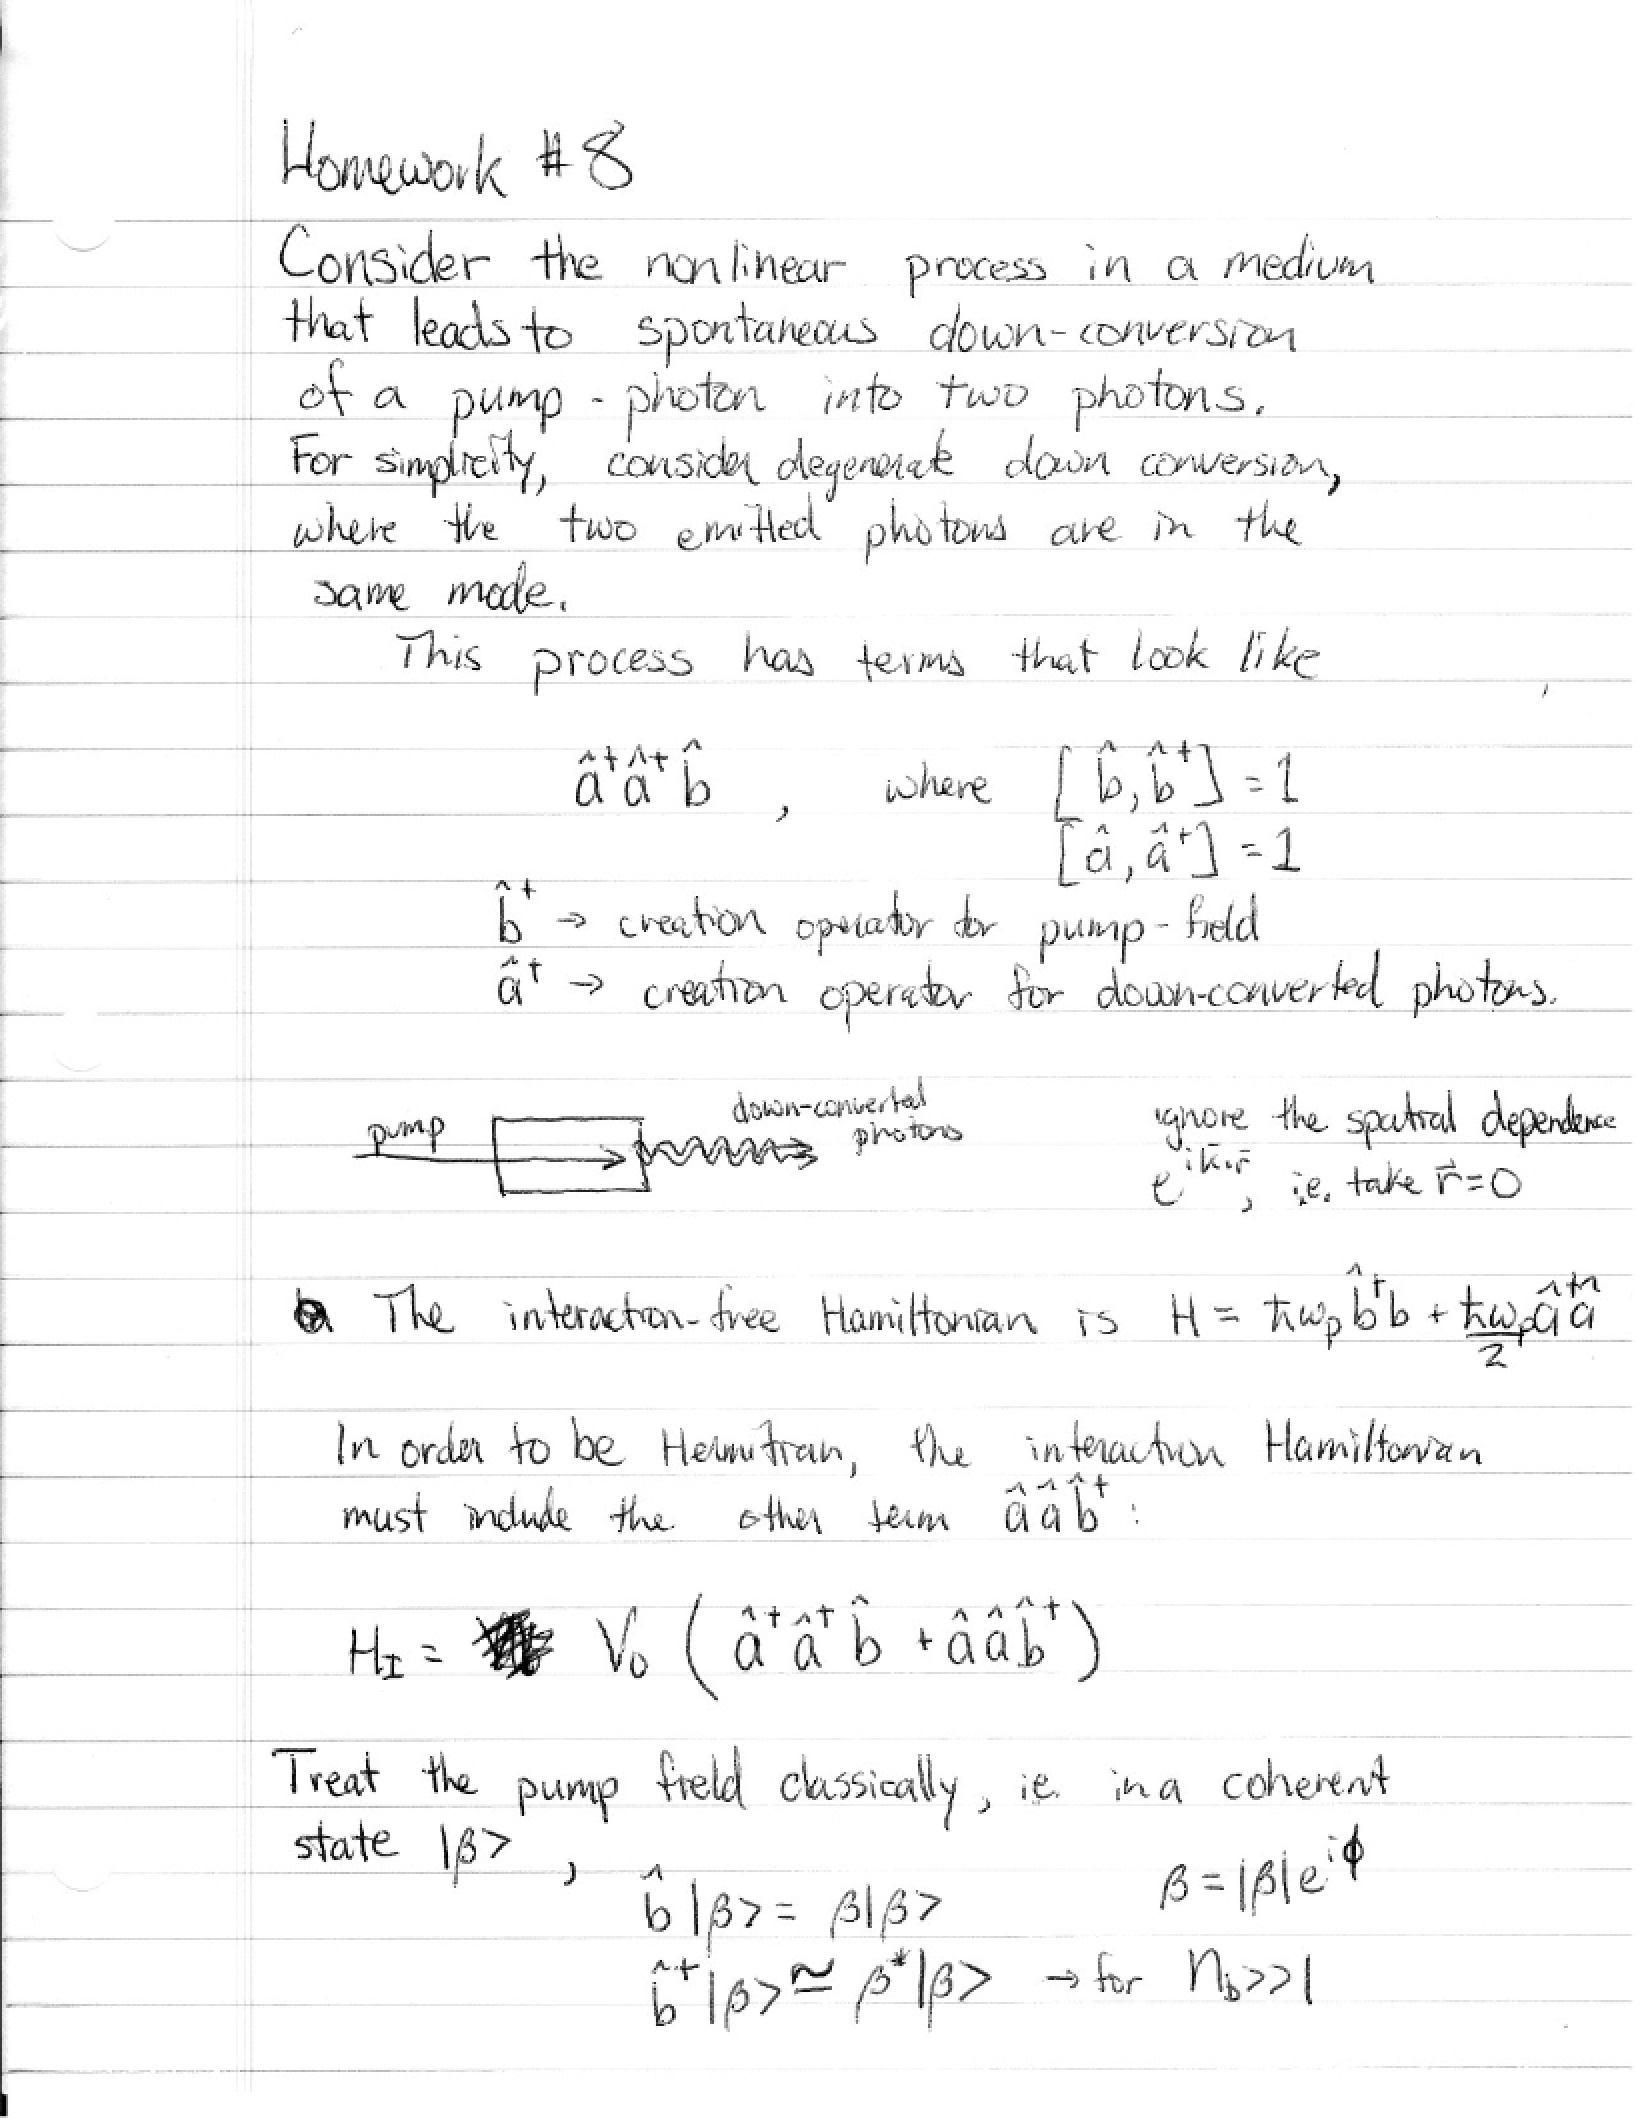 Homework #8
Consider the nonlinear process in a medium
that leads to spontaneous down-conversion
of a pump-photon into two photons.
For simplicity, consider degenerate down conversion,
where the two emitted photons are in the
same mode.
This process has terms that look like
â†â†b̂ , where [b̂, b̂†] = 1
[â, â†] = 1
b̂† → creation operator for pump-field
â† → creation operator for down-converted photons.
pump
down-converted
photons
ignore the spatial dependence
e^{ik⃗·r⃗}, i.e. take r⃗=0
The interaction-free Hamiltonian is H = ħω_p b̂†b + ħω_p/2 â†â
In order to be Hermitian, the interaction Hamiltonian
must include the other term ââb̂† :
H_I = V_0 (â†â†b̂ + ââb̂†)
Treat the pump field classically, ie. in a coherent
state |β> ,
b̂|β> = β|β> β = |β|e^{iϕ}
b̂†|β> ≅ β*|β> → for n_b>>1